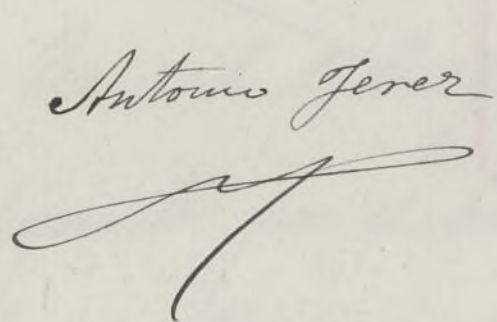 Antonio Jerez